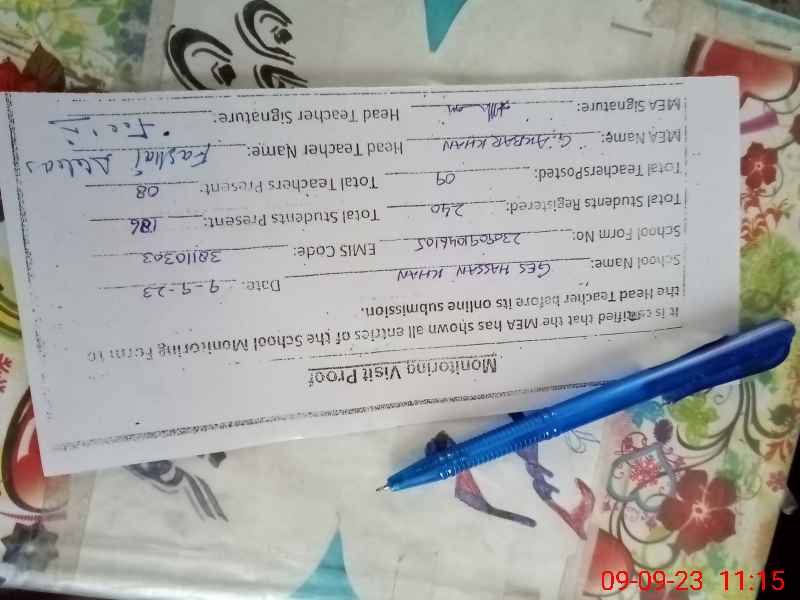 Monitoring Visit Proof
It is certified that the MEA has shown all entries of the School Monitoring Form to
the Head Teacher before its online submission.
School Name: GES HASSAN KHAN Date: 9-9-23
School Form No: EMIS Code: 38110303
Total Students Registered: 240 Total Students Present: 186
Total TeachersPosted: 09 Total Teachers Present: 08
MEA Name: G. AKBAR KHAN Head Teacher Name:
MEA Signature: Head Teacher Signature:
09-09-23 11:15